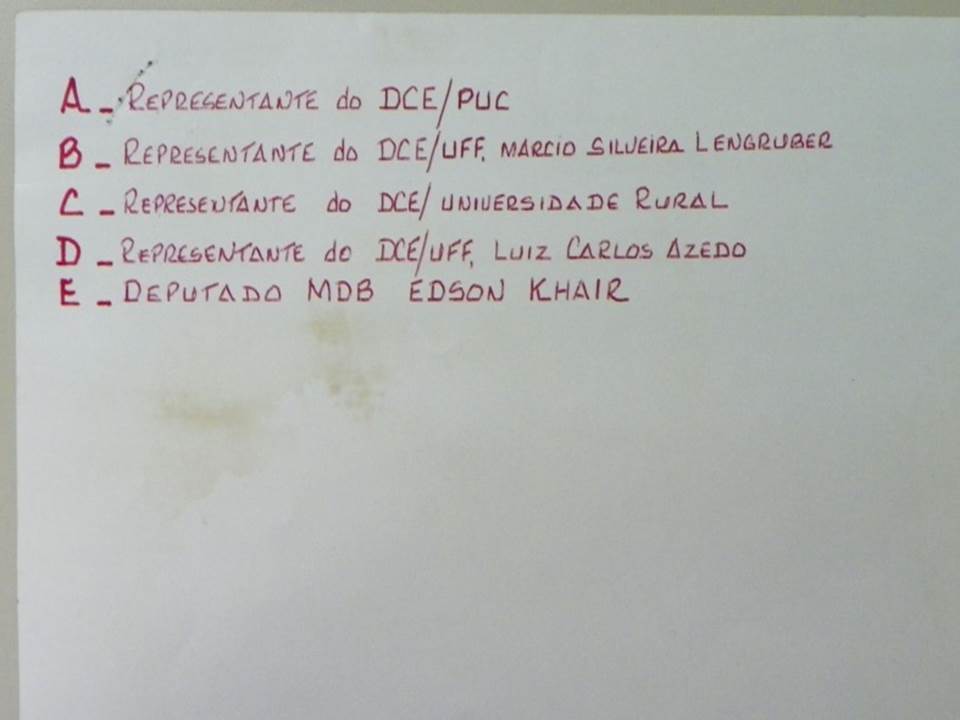 A - REPRESENTANTE do DCE/PUC
B - REPRESENTANTE do DCE/UFF, MARCIO SILVEIRA LENGRUBER
C - REPRESENTANTE do DCE/UNIVERSIDADE RURAL
D - REPRESENTANTE do DCE/UFF, LUIZ CARLOS AZEDO
E - DEPUTADO MDB EDSON KHAIR